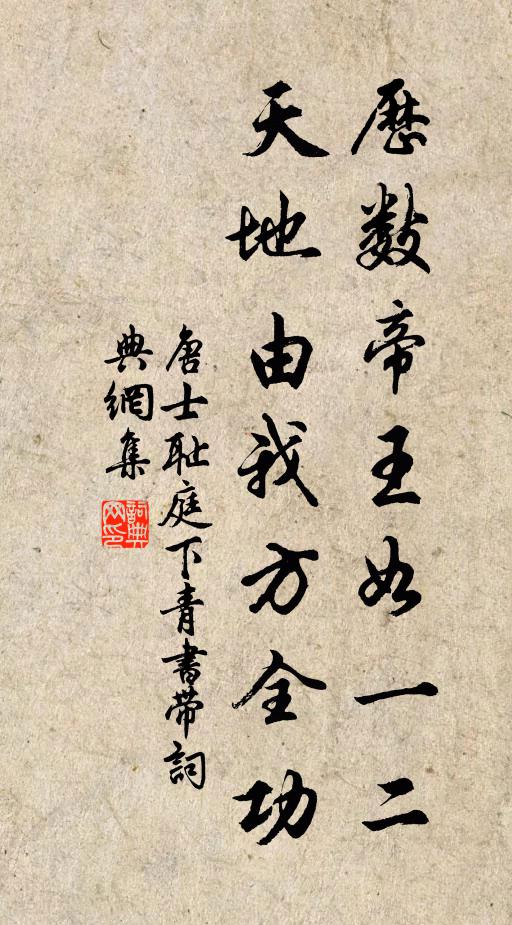 歷數帝王如一二
天地由我方全功
唐士耻庭下青書帶詞
典網集
詞典網印